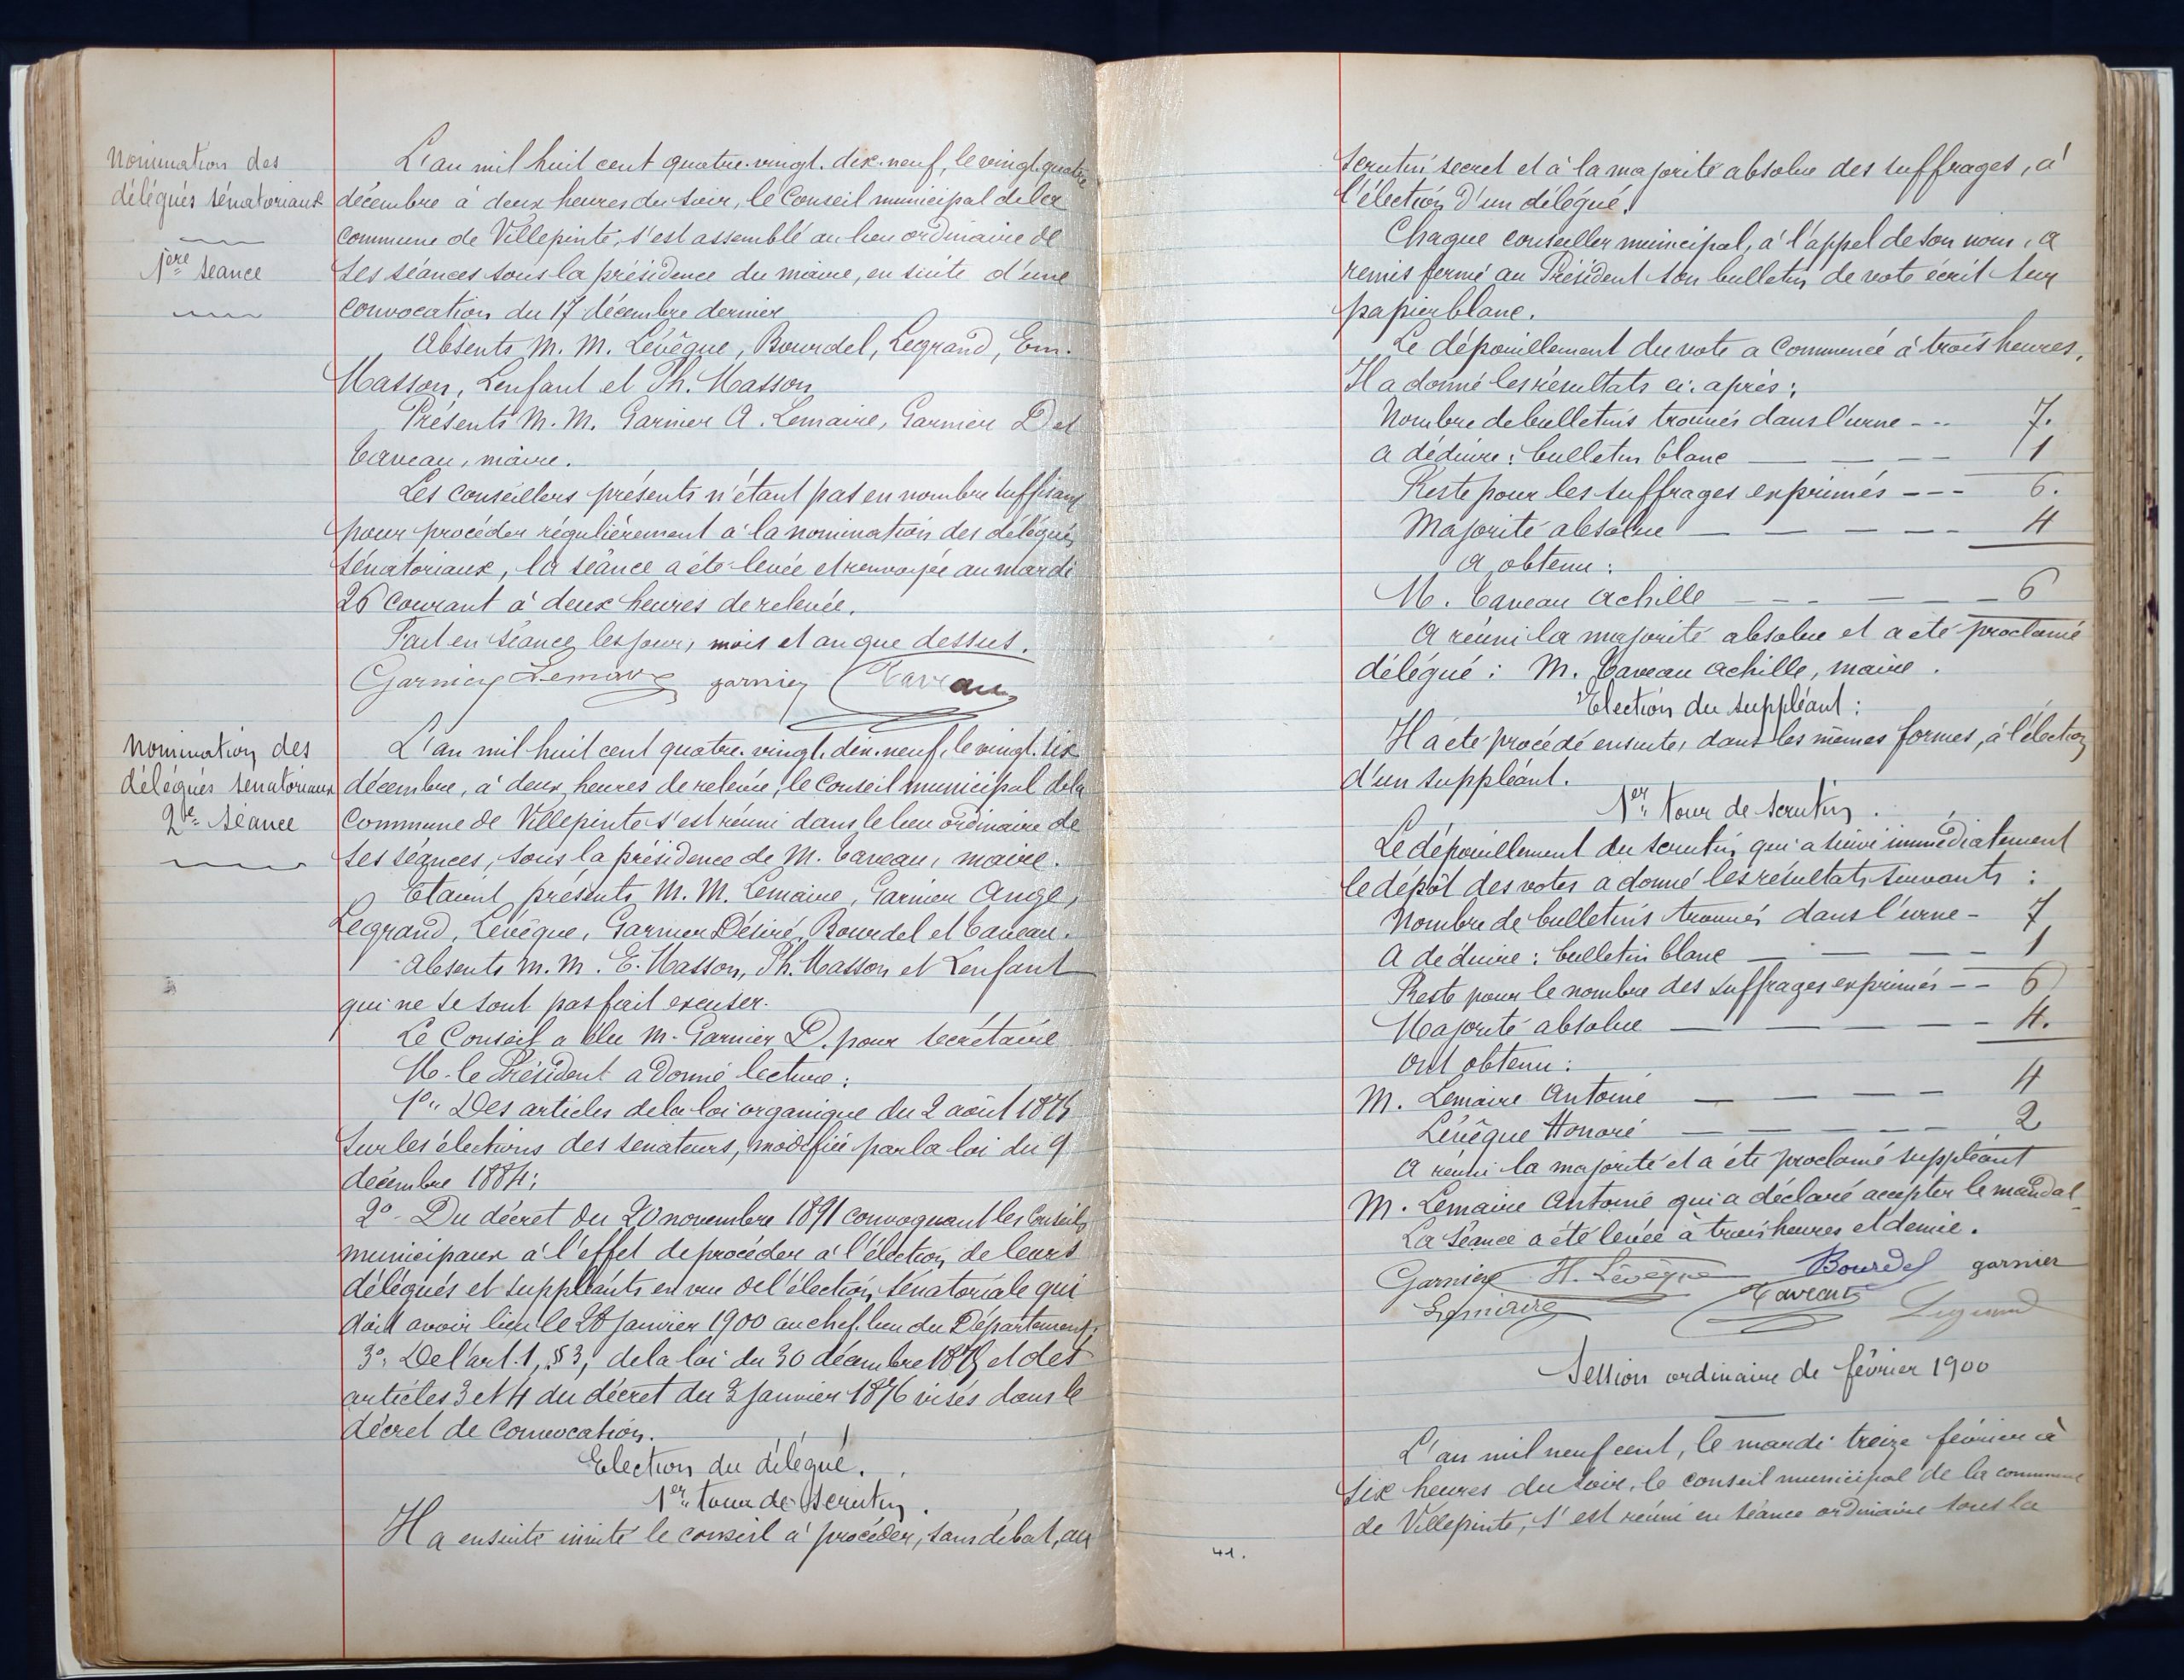 Nomination des
délégués sénatoriaux
1ère séance
L'an mil huit cent quatre-vingt-dix-neuf, le vingt-quatre
décembre à deux heures du soir, le Conseil municipal de la
commune de Villepinte, s'est assemblé au lieu ordinaire de
ses séances sous la présidence du maire, en suite d'une
convocation du 17 décembre dernier
Absents M. M. Lévêque, Bourdel, Legrand, Em.
Masson, Lenfant et Ph. Masson
Présents M. M. Garnier A. Lemaire, Garnier D et
Caveau, maire.
Les conseillers présents n'étant pas en nombre suffisant
pour procéder régulièrement à la nomination des délégués
sénatoriaux, la séance a été levée et renvoyée au mardi
26 courant à deux heures de relevée.
Fait en séance, les jour, mois et an que dessus.
Garnier Lemaire garnier Caveau
Nomination des
délégués sénatoriaux
2de séance
L'an mil huit cent quatre-vingt-dix-neuf, le vingt-six
décembre, à deux heures de relevée, le Conseil municipal de la
Commune de Villepinte s'est réuni dans le lieu ordinaire de
ses séances, sous la présidence de M. Caveau, maire.
Etaient présents M. M. Lemaire, Garnier Ange,
Legrand, Lévêque, Garnier Désiré, Bourdel et Caveau.
Absents M. M. E. Masson, Ph. Masson et Lenfant
qui ne se sont pas fait excuser.
Le Conseil a élu M. Garnier D. pour secrétaire
M. le Président a donné lecture:
1° Des articles de la loi organique du 2 août 1875
sur les élections des sénateurs, modifiée par la loi du 9
décembre 1884;
2° Du décret du 20 novembre 1891 convoquant les Conseils
municipaux à l'effet de procéder à l'élection de leurs
délégués et suppléants en vue de l'élection sénatoriale qui
doit avoir lieu le 28 janvier 1900 au chef-lieu du Département;
3° De l'art. 1, § 3, de la loi du 30 décembre 1875 et des
articles 3 et 4 du décret du 3 janvier 1876 visés dans le
décret de convocation.
Election du délégué.
1er tour de scrutin.
Il a ensuite invité le conseil à procéder, sans débat, au
scrutin secret et à la majorité absolue des suffrages, à
l'élection d'un délégué.
Chaque conseiller municipal, à l'appel de son nom, a
remis fermé au Président son bulletin de vote écrit sur
papier blanc.
Le dépouillement du vote a commencé à trois heures.
Il a donné les résultats ci-après:
Nombre de bulletins trouvés dans l'urne --- 7.
A déduire: bulletin blanc — 1
Reste pour les suffrages exprimés --- 6.
Majorité absolue — 4
A obtenu:
M. Caveau Achille — 6
A réuni la majorité absolue et a été proclamé
délégué: M. Caveau Achille, maire.
Election du suppléant:
Il a été procédé ensuite, dans les mêmes formes, à l'élection
d'un suppléant.
1er tour de scrutin.
Le dépouillement du scrutin qui a suivi immédiatement
le dépôt des votes a donné les résultats suivants:
Nombre de bulletins trouvés dans l'urne - 7
A déduire: bulletin blanc — 1
Reste pour le nombre des suffrages exprimés -- 6
Majorité absolue — 4.
Ont obtenu:
M. Lemaire Antoine — 4
Lévêque Honoré — 2
A réuni la majorité et a été proclamé suppléant
M. Lemaire Antoine qui a déclaré accepter le mandat.
La séance a été levée à trois heures et demie.
Garnier H. Lévêque Bourdel garnier
Lemaire Caveau Legrand
Session ordinaire de février 1900
L'an mil neuf cent, le mardi treize février à
six heures du soir, le conseil municipal de la commune
de Villepinte, s'est réuni en séance ordinaire sous la
41.